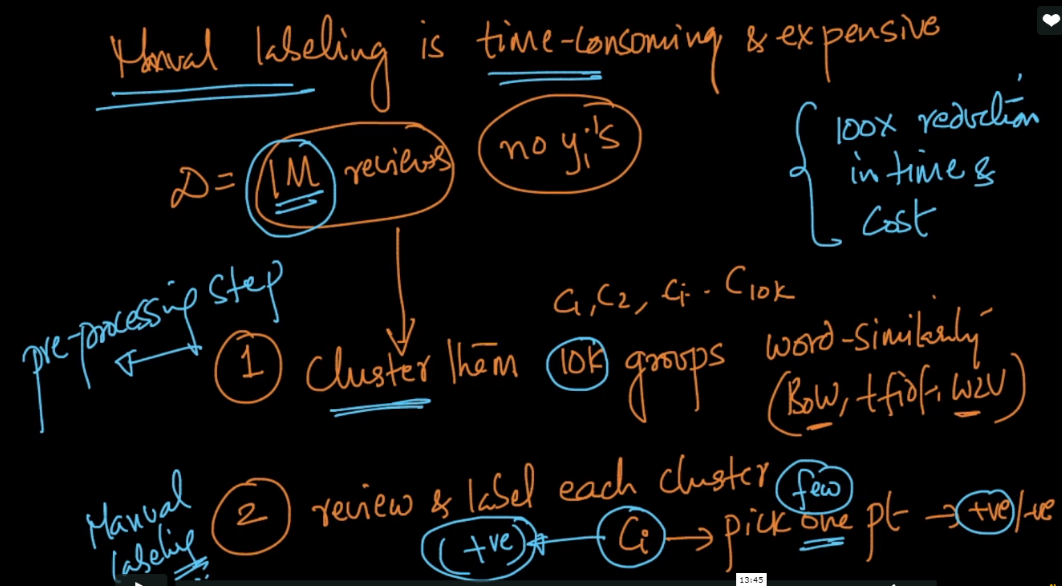 Manual labeling is time-consoming & expensive
D = 1M reviews no yi's
100X reduction
in time &
Cost
pre-processing step
C1, C2, Ci .. C10K
1 Cluster them 10K groups
word-similarity
(BoW, tfidf, W2V)
2 review & label each cluster few
Manual
labeling
+ve Ci → pick one pt → +ve/-ve
13:45